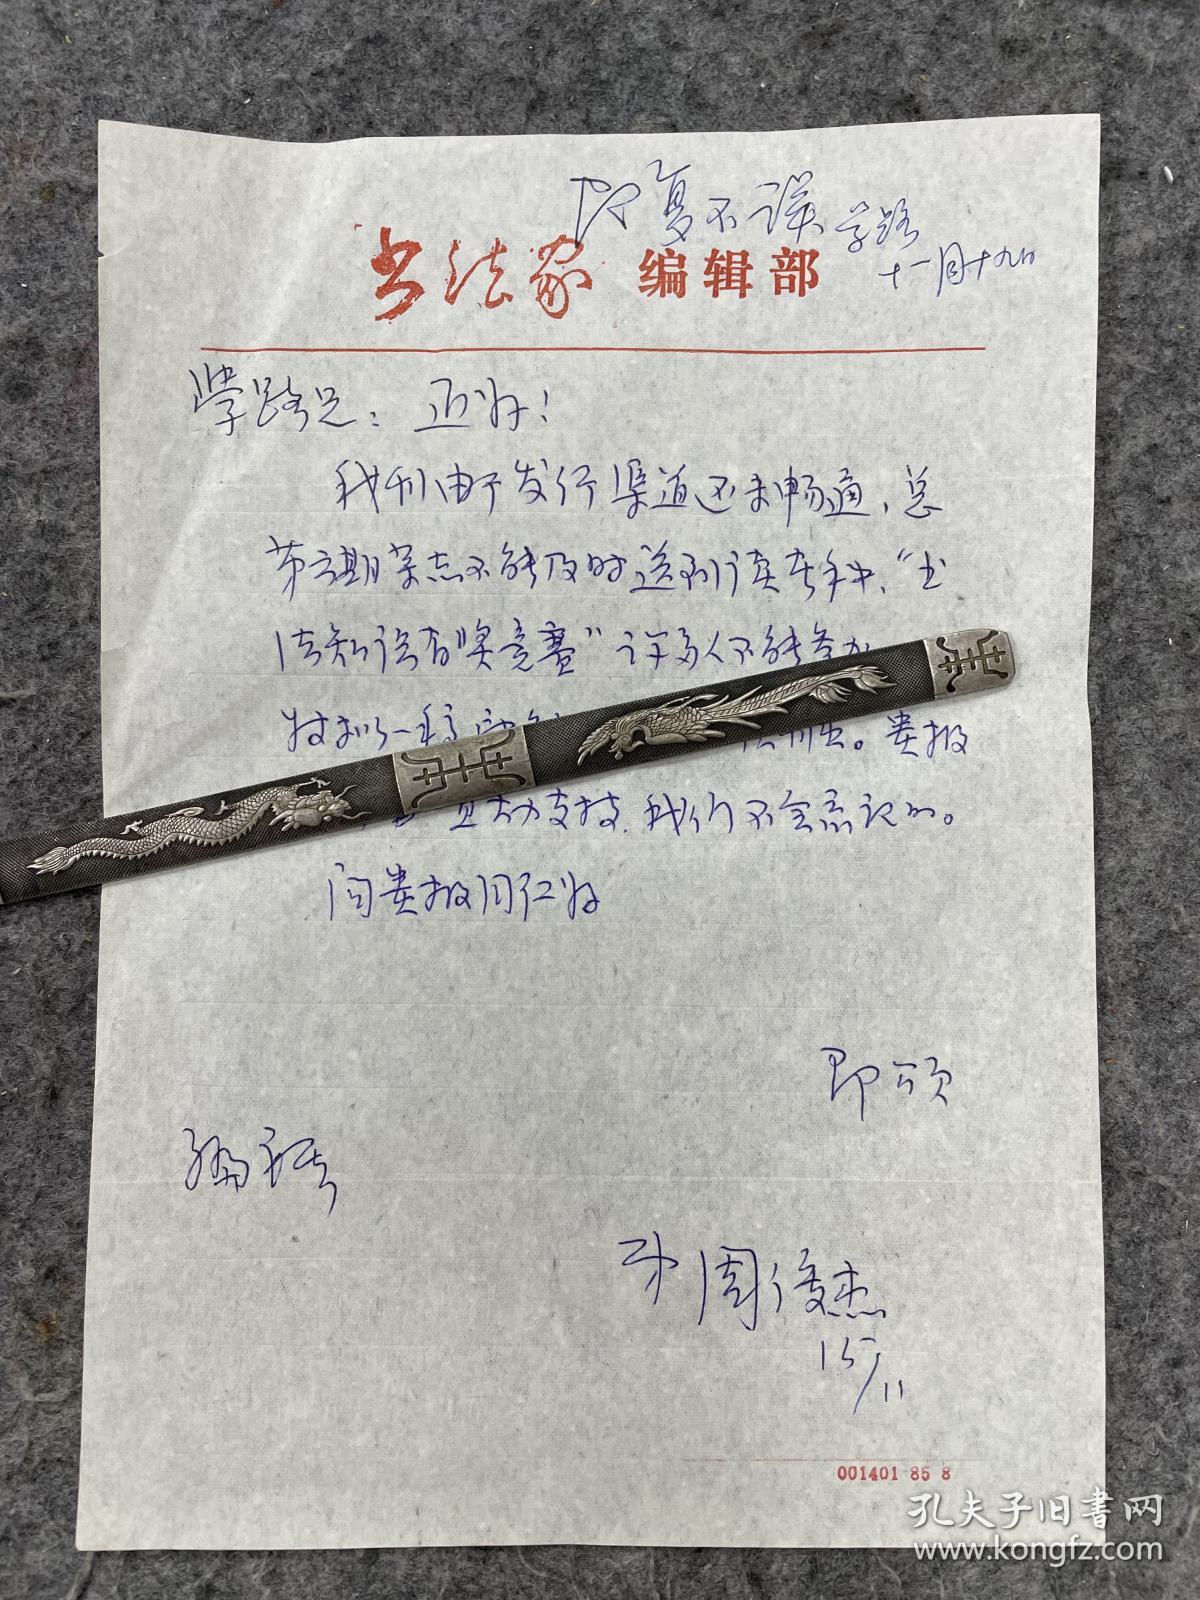 即复不误 学路
十一月十九日
书法家 编辑部
学路兄：近好！
我刊由于发行渠道还未畅通，总
第三期杂志不能及时送到读者手中，“书
法知识有奖竞赛”许多人不能参加
特拟一稿 刊出。贵报
大力支持，我们不会忘记的。
问贵报同仁好
即颂
编祺
弟周俊杰
15/11
001401 85 8
孔夫子旧书网
www.kongfz.com